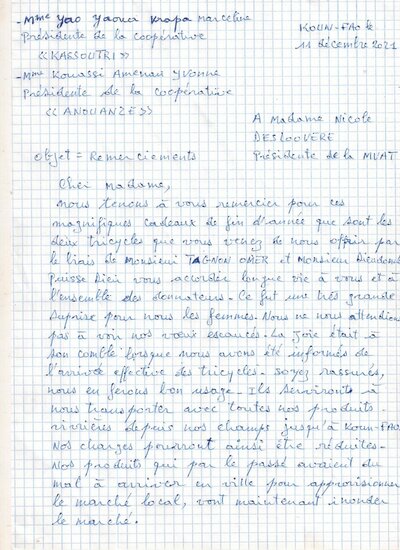 - Mme Yao Yaoua Krapa Marceline
Présidente de la Coopérative
<< KASSOUTRI >>
- Mme Kouassi Amenan Yvonne
Présidente de la coopérative
<< ANOUANZE >>
KOUN-FAO le
11 décembre 2021
A Madame Nicole
DESLOOVERE
Présidente de la MVAT
Objet = Remerciements
Cher Madame,
nous tenons à vous remercier pour ces
magnifiques cadeaux de fin d'année que sont les
deux tricycles que vous venez de nous offrir par
le biais de Monsieur TAGNON OMER et Monsieur Dieudonné
Puisse Dieu vous accorder longue vie à vous et à
l'ensemble des donnateurs. Ce fut une très grande
suprise pour nous les femmes. Nous ne nous attendions
pas à voir nos vœux exaucés. La joie était à
son comble lorsque nous avons été informés de
l'arrivée effective des tricycles. Soyez rassurés,
nous en ferons bon usage. Ils serviront à
nous transporter avec toutes nos produits
vivrières depuis nos champs jusqu'à Koun-FAO.
Nos charges pourront ainsi être réduites.
Nos produits qui par le passé avaient du
mal à arriver en ville pour approvisionner
le marché local, vont maintenant inonder
le marché.